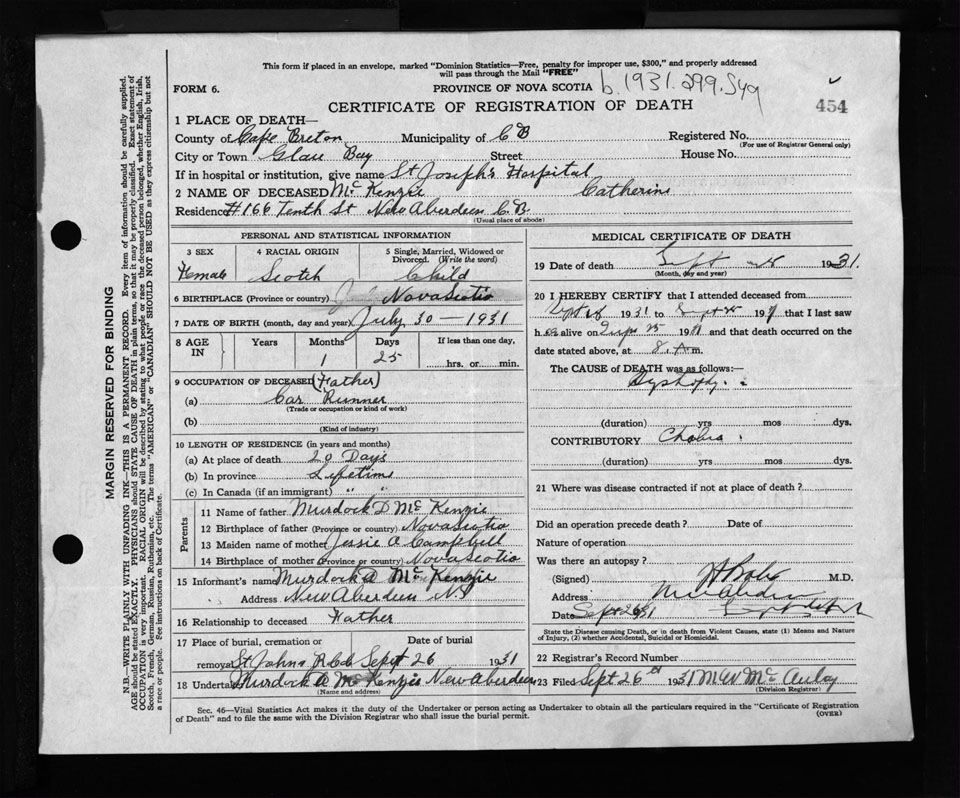 This form if placed in an envelope, marked "Dominion Statistics—Free, penalty for improper use, $300," and properly addressed
will pass through the Mail "FREE"
FORM 6. PROVINCE OF NOVA SCOTIA b. 1931.299.549
CERTIFICATE OF REGISTRATION OF DEATH 454
1 PLACE OF DEATH—
County of Cape Breton Municipality of CB Registered No.
(For use of Registrar General only)
City or Town Glace Bay Street House No.
If in hospital or institution, give name St Joseph's Hospital
2 NAME OF DECEASED McKenzie Catherine
Residence #166 Tenth St New Aberdeen C.B
(Usual place of abode)
PERSONAL AND STATISTICAL INFORMATION
3 SEX 4 RACIAL ORIGIN 5 Single, Married, Widowed or
Divorced. (Write the word)
Female Scotch Child
6 BIRTHPLACE (Province or country) Nova Scotia
7 DATE OF BIRTH (month, day and year) July 30 — 1931
8 AGE IN Years Months Days If less than one day,
1 25 hrs. or min.
9 OCCUPATION OF DECEASED (Father)
(a) Car Runner
(Trade or occupation or kind of work)
(b)
(Kind of industry)
10 LENGTH OF RESIDENCE (in years and months)
(a) At place of death 20 Days
(b) In province Lifetime
(c) In Canada (if an immigrant) " "
Parents
11 Name of father Murdock D McKenzie
12 Birthplace of father (Province or country) Nova Scotia
13 Maiden name of mother Jessie A Campbell
14 Birthplace of mother (Province or country) Nova Scotia
15 Informant's name Murdock D McKenzie
Address New Aberdeen NS
16 Relationship to deceased Father
17 Place of burial, cremation or Date of burial
removal St Johns Sept 26 1931
18 Undertaker Murdock D McKenzie New Aberdeen
(Name and address)
MEDICAL CERTIFICATE OF DEATH
19 Date of death Sept 25 1931.
(Month, day and year)
20 I HEREBY CERTIFY that I attended deceased from
1931 to Sept 25 1931 that I last saw
h er alive on Sept 25 1931 and that death occurred on the
date stated above, at 8. A. m.
The CAUSE of DEATH was as follows:—
(duration) yrs mos dys.
CONTRIBUTORY
(duration) yrs mos dys.
21 Where was disease contracted if not at place of death?
Did an operation precede death? Date of
Nature of operation
Was there an autopsy?
(Signed) M.D.
Address New Aberdeen
Date Sept 26 31
State the Disease causing Death, or in death from Violent Causes, state (1) Means and Nature
of Injury, (2) whether Accidental, Suicidal or Homicidal.
22 Registrar's Record Number
23 Filed Sept 26th 1931 M W McAulay
(Division Registrar)
Sec. 46—Vital Statistics Act makes it the duty of the Undertaker or person acting as Undertaker to obtain all the particulars required in the "Certificate of Registration
of Death" and to file the same with the Division Registrar who shall issue the burial permit. (OVER)
MARGIN RESERVED FOR BINDING
N.B.—WRITE PLAINLY WITH UNFADING INK—THIS IS A PERMANENT RECORD. Every item of information should be carefully supplied.
AGE should be stated EXACTLY. PHYSICIANS should STATE CAUSE OF DEATH in plain terms, so that it may be properly classified. Exact statement of
OCCUPATION is very important. RACIAL ORIGIN will be described by stating to what people or race the deceased person belonged, whether English, Irish,
Scotch, French, German, Russian, Ruthenian, etc. The terms "AMERICAN" or "CANADIAN" SHOULD NOT BE USED as they express citizenship but not
a race or people. See instructions on back of Certificate.